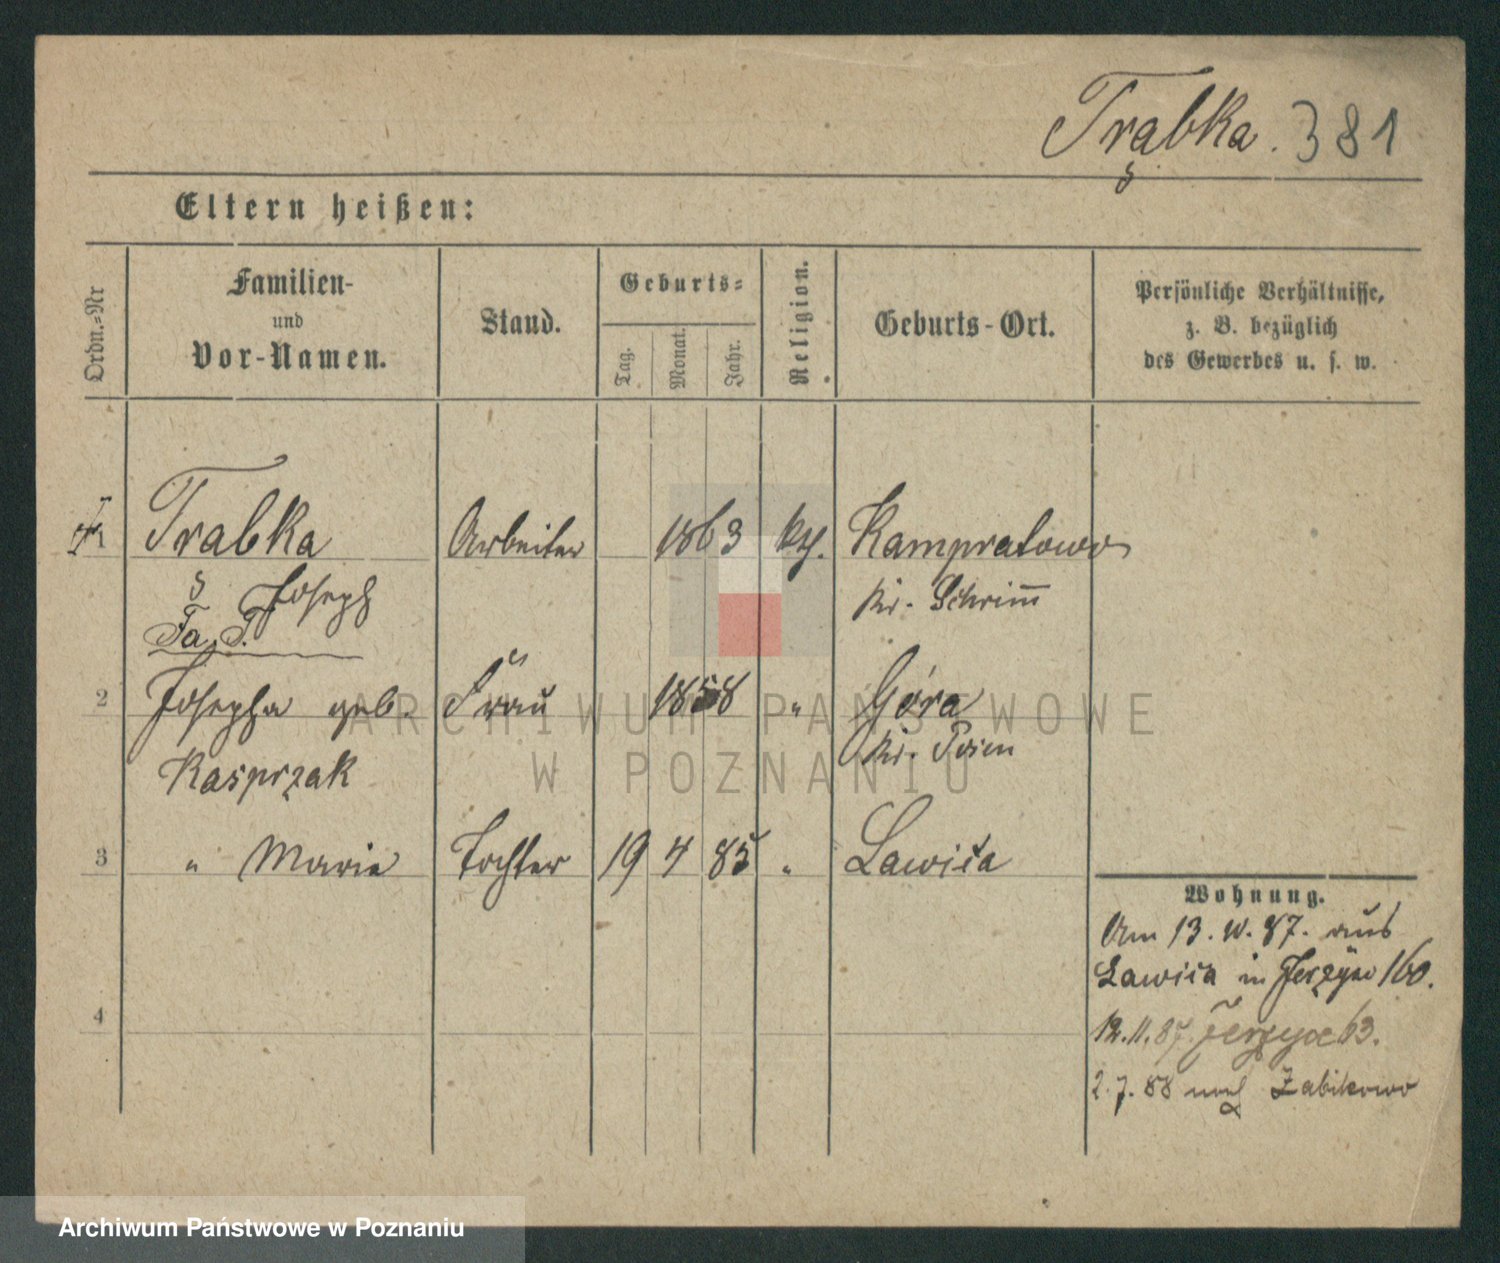 Trąbka. 381
Eltern heißen:
Ordn.-Nr
Familien-
und
Vor-Namen.
Stand.
Geburts-
Tag.
Monat.
Jahr.
Religion.
Geburts-Ort.
Persönliche Verhältnisse,
z. B. bezüglich
des Gewerbes u. s. w.
1 Trąbka Arbeiter 1863 kth. Kampratowo
Joseph Kr. Schrim̅
Fa. T.
2 Josepha geb. Frau 1858 " Góra
Kasprzak Kr. Posen
3 " Marie Tochter 19 4 85 " Lawica
Wohnung.
Am 13. 10. 87. aus
Lawica in Jerzyce 160.
12. 11. 87. Jerzyce 63.
4
2. 7. 88 nach Zabikowo
ARCHIWUM PAŃSTWOWE
W POZNANIU
Archiwum Państwowe w Poznaniu